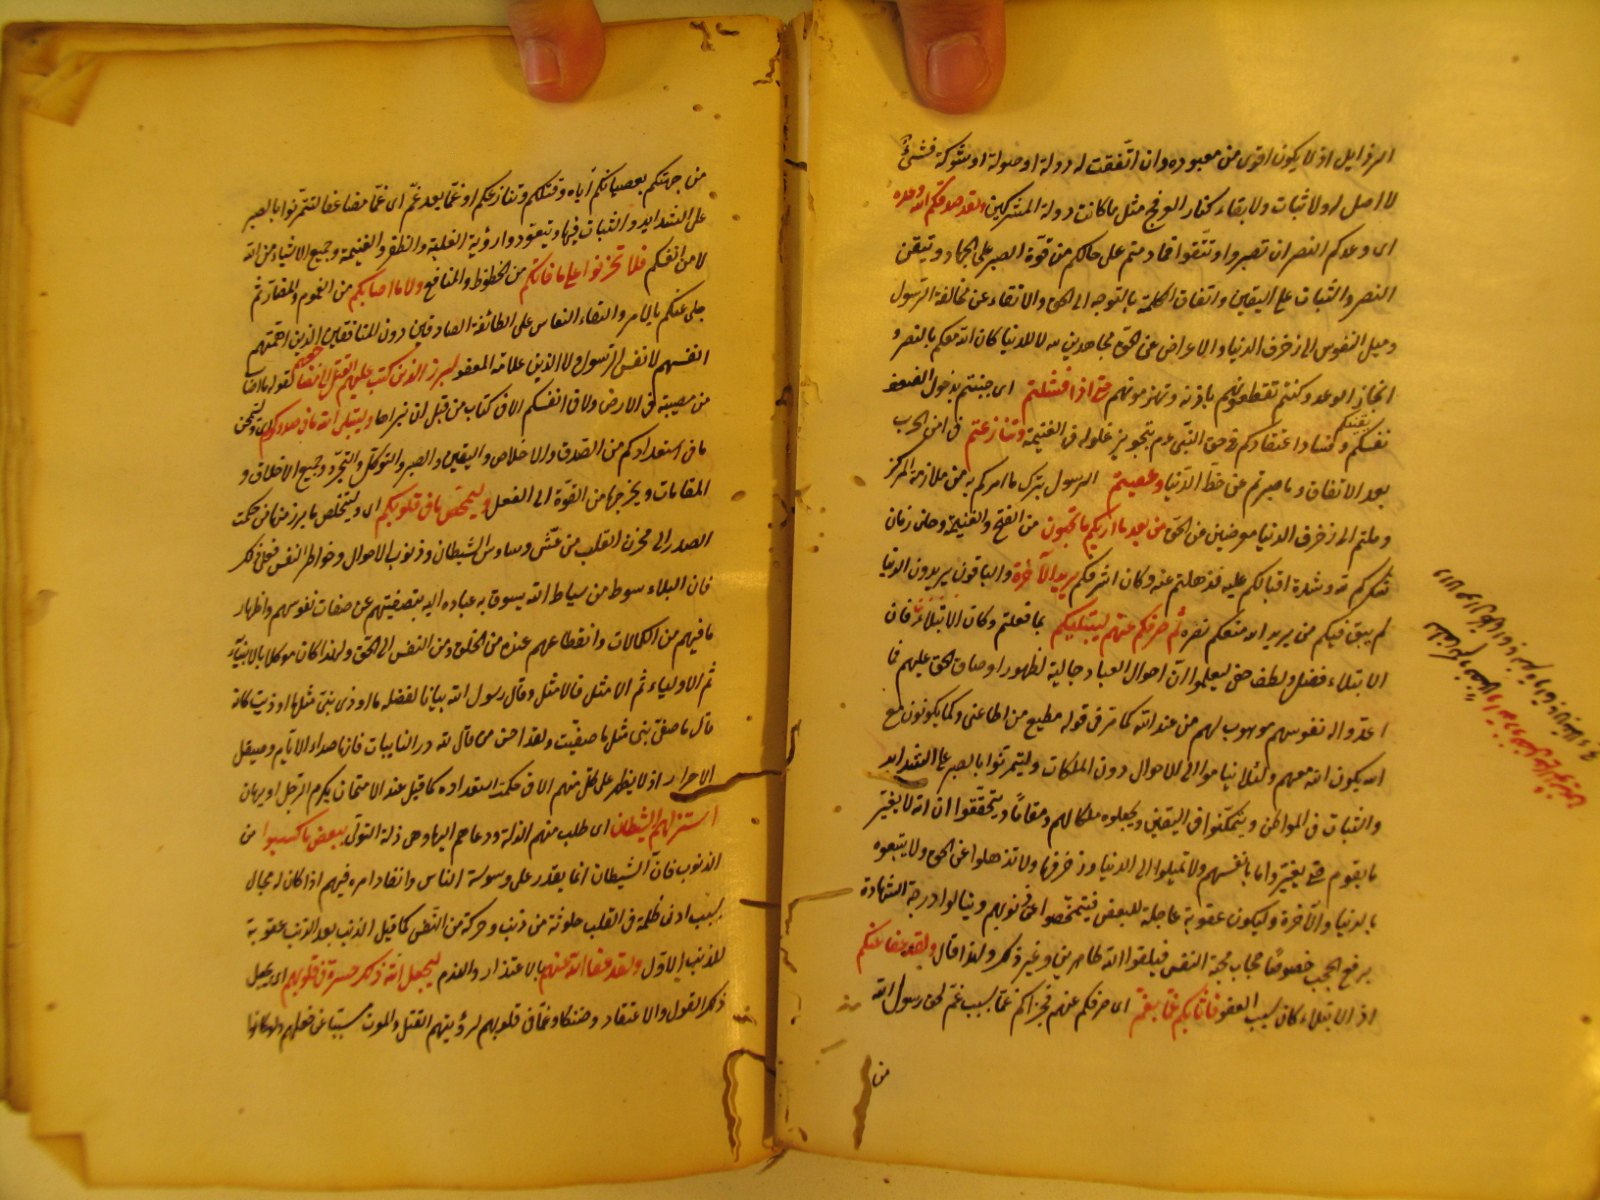 الرذايل اذ لا يكون اقوى من معبوده وان اتفقت له دولة او صولة او شوكة فشئ
لا اصل له ولا ثبات ولا بقاء كنار العرفج مثل ما كانت دولة المشركين ولقد صدقكم الله وعده
اى وعدكم النصر ان تصبروا وتتقوا فما دمتم على حالكم من قوة الصبر على الجهاد وتيقن
النصر والثبات على اليقين واتفاق الكلمة بالتوجه الى الحق والاتقاء عن مخالفة الرسول
وميل النفوس الى زخرف الدنيا والاعراض عن الحق مجاهدين لله لا للدنيا كان الله معكم بالنصر و
انجاز الوعد وكنتم تقطعونهم باذنه وتهزمونهم حتى اذا فشلتم اى جبنتم بدخول الضعف
فى يقينكم وفساد اعتقادكم فى حق النبى بتجويز غلوله فى الغنيمة وتنازعتم فى امر الحرب
بعد الاتفاق وما صبرتم عن حظ الدنيا وعصيتم الرسول بترك ما امركم به من ملازمة المركز
وملتم الى زخرف الدنيا معرضين عن الحق من بعد ما اريكم ما تحبون من الفتح والغنيمة وحان زمان
شكركم لله وشدة اقبالكم عليه فذهلتم عنه وكان اشرفكم يريد الآخرة والباقون يريدون الدنيا
لم يبق فيكم من يريد الله منعكم نصره ثم صرفكم عنهم ليبتليكم بما فعلتم وكان الابتلاء فان
الابتلاء فضل ولطف حتى ليعلموا ان احوال العباد جالية لظهور اوصاف الحق عليهم فما
اعدوا له نفوسهم موهوب لهم من عند الله كما مر فى قوله مطيع من اطاعنى وكما يكونون مع
الله يكون الله معهم ولئلا يناموا الى الاحوال دون الملكات وليتمرنوا بالصبر على الشدائد
والثبات فى المواطن ويتمكنوا فى اليقين ويجعلوه ملكا لهم ومقاما ويتحققوا ان الله لا يغير
ما بقوم حتى يغيروا ما بانفسهم ولا تميلوا الى الدنيا وزخرفها ولا تذهلوا عن الحق ولا يتبعوه
بالدنيا والآخرة وليكون عقوبة عاجلة للبعض فيتمحصوا عن ذنوبهم وينالوا درجة الشهادة
برفع الحجب خصوصا حجاب محبة النفس فيلقوا الله طاهرين وغير ذلك ولذا قال ولقد عفا عنكم
اذ الابتلاء كان سبب العفو فاثابكم غما بغم اى صرفكم عنهم فجزاكم غما بسبب غم لحق رسول الله
من
من جهتكم بعصيانكم اياه وفشلكم وتنازعكم او غما بعد غم اى غما مضاعفا لتتمرنوا بالصبر
على الشدايد والثبات فيها وتتعودوا رؤية الغلبة والظفر والغنيمة وجميع الاشياء من الله
لا من انفسكم فلا تحزنوا على ما فاتكم من الحظوظ والمنافع ولا ما اصابكم من الغموم والمضار ثم
جلى عنكم بالامر والقاء النعاس على الطائفة الصادقين دون المنافقين الذين اهمتهم
انفسهم لا نفس الرسول ولا الدين علامة العفو لبرز الذين كتب عليهم القتل الى مضاجعهم لقوله ما اصاب
من مصيبة فى الارض ولا فى انفسكم الا فى كتاب من قبل ان نبراها وليبتلى الله ما فى صدوركم اى وليمتحن
ما فى استعدادكم من الصدق والاخلاص واليقين والصبر والتوكل والتجرد وجميع الاخلاق و
المقامات ويخرجها من القوة الى الفعل وليمحص ما فى قلوبكم اى وليتخلص ما برز منها من مكمن
الصدر الى مخزن القلب من غش وساوس الشيطان وذنوب الاحوال وخواطر النفس فعل ذلك
فان البلاء سوط من سياط الله يسوق به عباده اليه بتصفيتهم عن صفات نفوسهم واظهار
ما فيهم من الكمالات وانقطاعهم عنده من الخلق ومن النفس الى الحق ولهذا كان موكلا بالانبياء
ثم الاولياء ثم الامثل فالامثل وقال رسول الله بيانا لفضله ما اوذى نبى مثل ما اوذيت كانه
قال ما صفى نبى مثل ما صفيت ولقد احسن من قال لله در النايبات فانها صداء الايام وصيقل
الاحرار اذ لا يظهر على كل منهم الا فى مكمن استعداده كما قيل عند الامتحان يكرم الرجل او يهان
استزلهم الشيطان اى طلب منهم الذلة ودعاهم اليها وهى ذلة التولى ببعض ما كسبوا من
الذنوب فان الشيطان انما يقدر على وسوسة الناس وانفاد امره فيهم اذا كان له مجال
بسبب ادنى ظلمة فى القلب حادثة من ذنب وحركة من النفس كما قيل الذنب بعد الذنب عقوبة
للذنب الاول ولقد عفا الله عنهم بالاعتذار والندم ليجعل الله ذلك حسرة فى قلوبهم اى يجعل
ذلك القول والاعتقاد وضنكا وغما فى قلوبهم لرؤيتهم القتل والموت مسببا عن فعلهم ولو كانوا